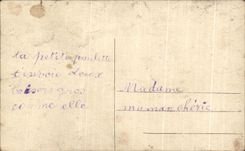 ta petite poulette
t'envoie deux
baisers gros
comme elle
Madame
maman chérie